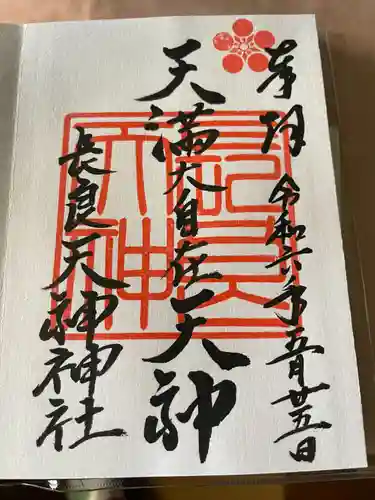 奉拝
令和六年五月廿五日
天満大自在天神
長良天神神社